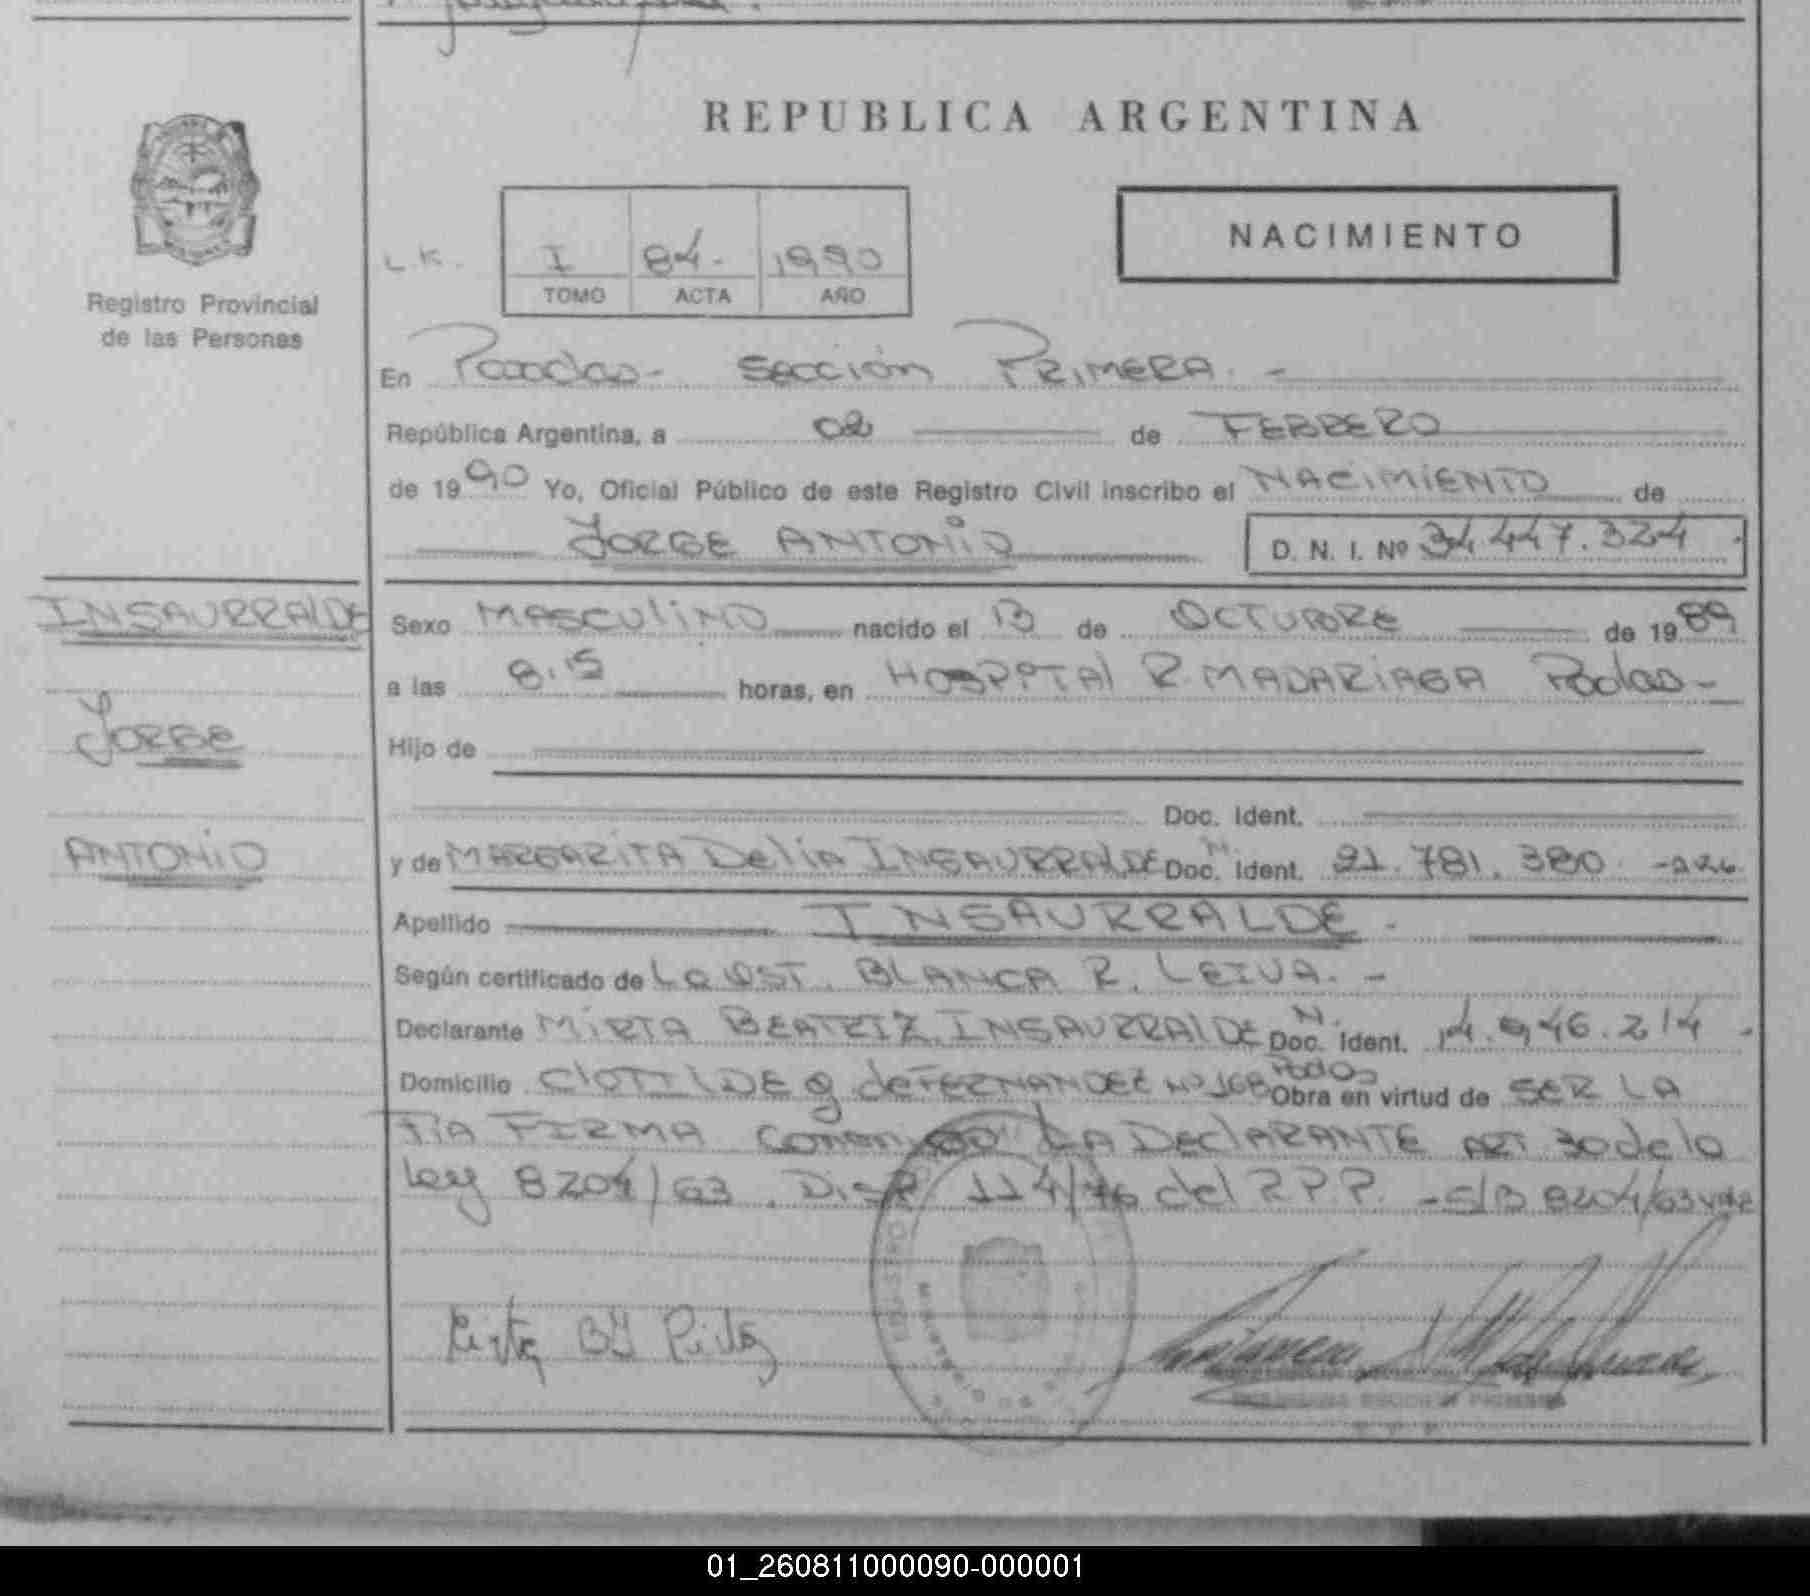 REPUBLICA ARGENTINA
NACIMIENTO
L.K. I 84.- 1990
TOMO ACTA AÑO
Registro Provincial
de las Personas
En Posadas- Sección PRIMERA.-
República Argentina, a 02 de FEBRERO
de 1990 Yo, Oficial Público de este Registro Civil inscribo el NACIMIENTO de
JORGE ANTONIO D. N. I. Nº 34.447.324.
INSAURRALDE
Jorge
ANTONIO
Sexo MASCULINO nacido el 13 de OCTUBRE de 1989
a las 8.15 horas, en HOSPITAL R. MADARIAGA Podas-
Hijo de
Doc. Ident.
y de MARGARITA DeliA INSAURRALDE N. Doc. Ident. 21.781.380 -226
Apellido INSAURRALDE.-
Según certificado de La OST. BLANCA R. LEIVA.-
Declarante MIRTA BEATRIZ INSAURRALDE N. Doc. Ident. 14.946.214.
Domicilio CLOTILDE g deFERNANDEZ Nº 168 Podas Obra en virtud de SER LA
TIA FIRMA conmigo LA DeclARANTE ART 30 de la
Ley 8204/63. Disp 114/76 del R.P.P. -S/B 8204/63 vale
01_260811000090-000001